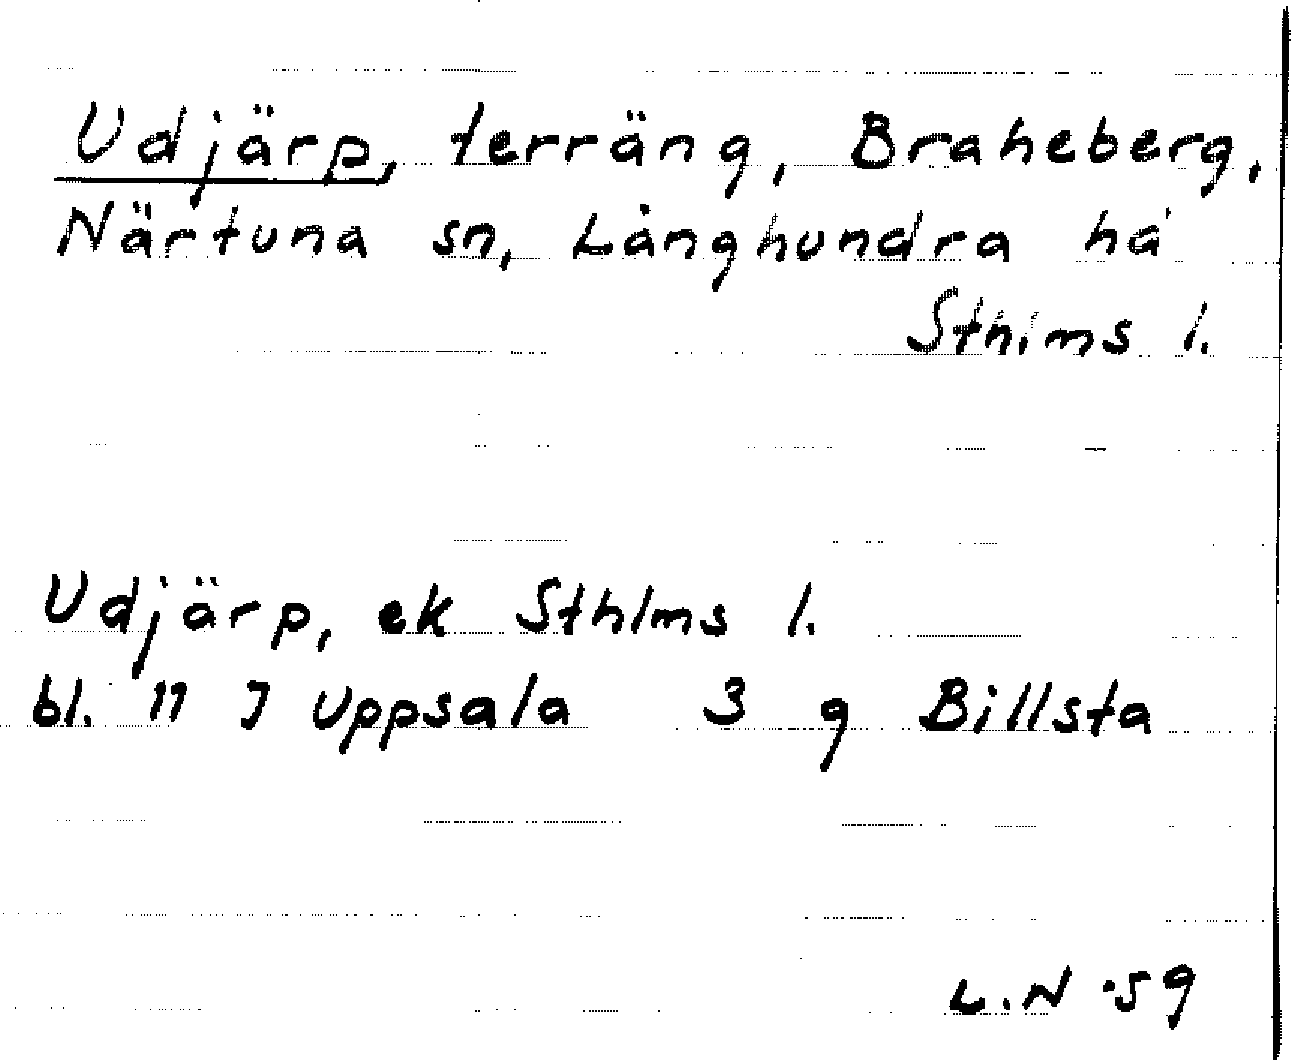 Udjärp, terräng, Braheberg,
Närtuna sn, Långhundra hd
Sthlms l.
Udjärp, ek Sthlms l.
bl. 11 I Uppsala 3 g Billsta
L.N -59